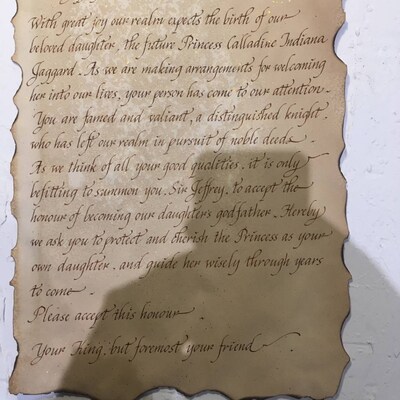 With great joy our realm expects the birth of our
beloved daughter, the future Princess Calladine Indiana
Jaggard. As we are making arrangements for welcoming
her into our lives, your person has come to our attention.
You are famed and valiant, a distinguished knight,
who has left our realm in pursuit of noble deeds.
As we think of all your good qualities, it is only
befitting to summon you, Sir Jeffrey, to accept the
honour of becoming our daughters godfather. Hereby
we ask you to protect and cherish the Princess as your
own daughter, and guide her wisely through years
to come.
Please accept this honour
Your King, but foremost your friend